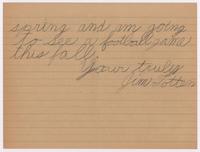 spring and am going
to see a football game
this fall.
Your truly
Jim Totten